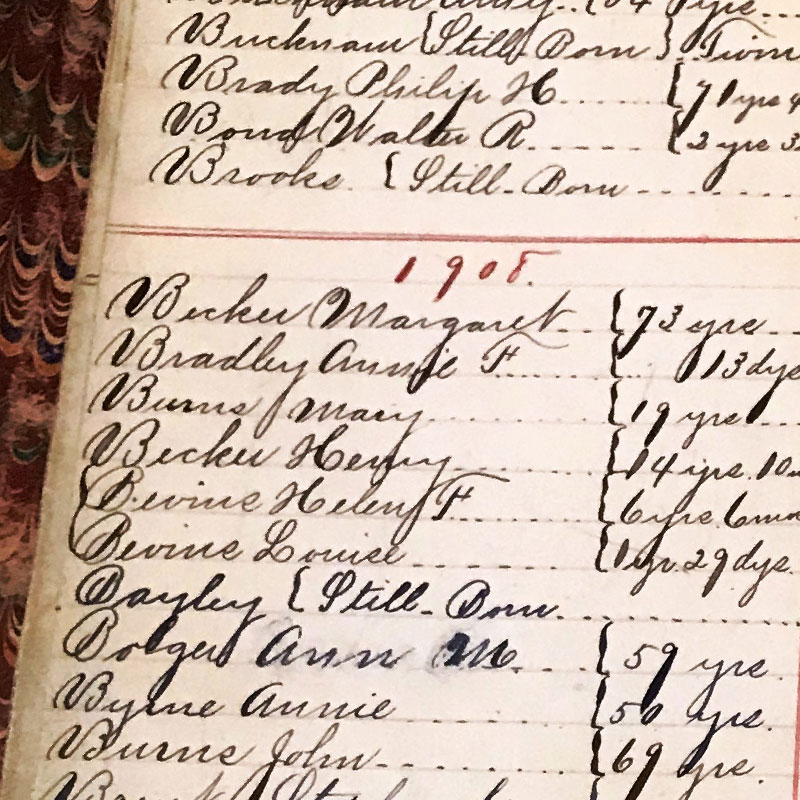 {64 yrs
Bucknam {Still-Born} Twin
Brady Philip H. {71 yrs
Bond Walter R. {2 yrs 3
Brooks {Still-Born
1908.
Becker Margaret {73 yrs
Bradley Annie F {13 dys
Burns Mary {19 yrs
Becker Henry {14 yrs. 10
Bevins Helen F {6 yrs. 6 mos
Bevins Louise {1 yr. 29 dys.
Bayley {Still-Born
Bolger Ann M. {59 yrs.
Byrne Annie {50 yrs.
Burns John {69 yrs.